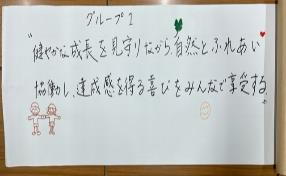 グループ1
"健やかな成長を見守りながら自然とふれあい
協働し、達成感を得る喜びをみんなで享受する"